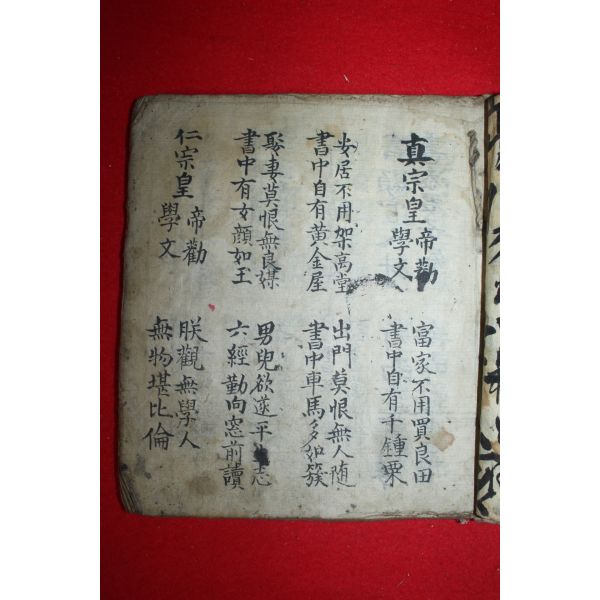 真宗皇帝勸學文
富家不用買良田
書中自有千鍾粟
安居不用架高堂
書中自有黃金屋
出門莫恨無人随
書中車馬多如簇
娶妻莫恨無良媒
書中有女顔如玉
男兒欲遂平生志
六經勤向窓前讀
仁宗皇帝勸學文
朕觀無學人
無物堪比倫